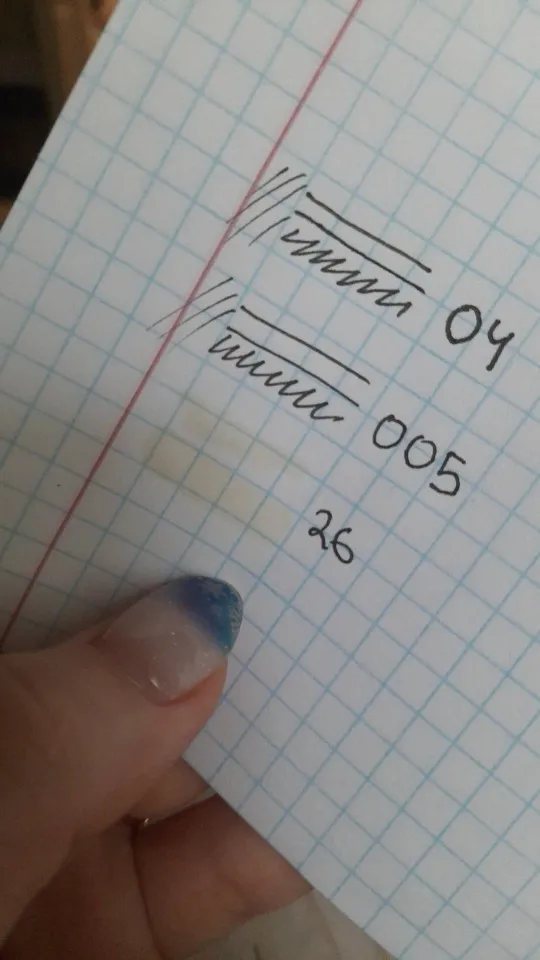 04
005
26